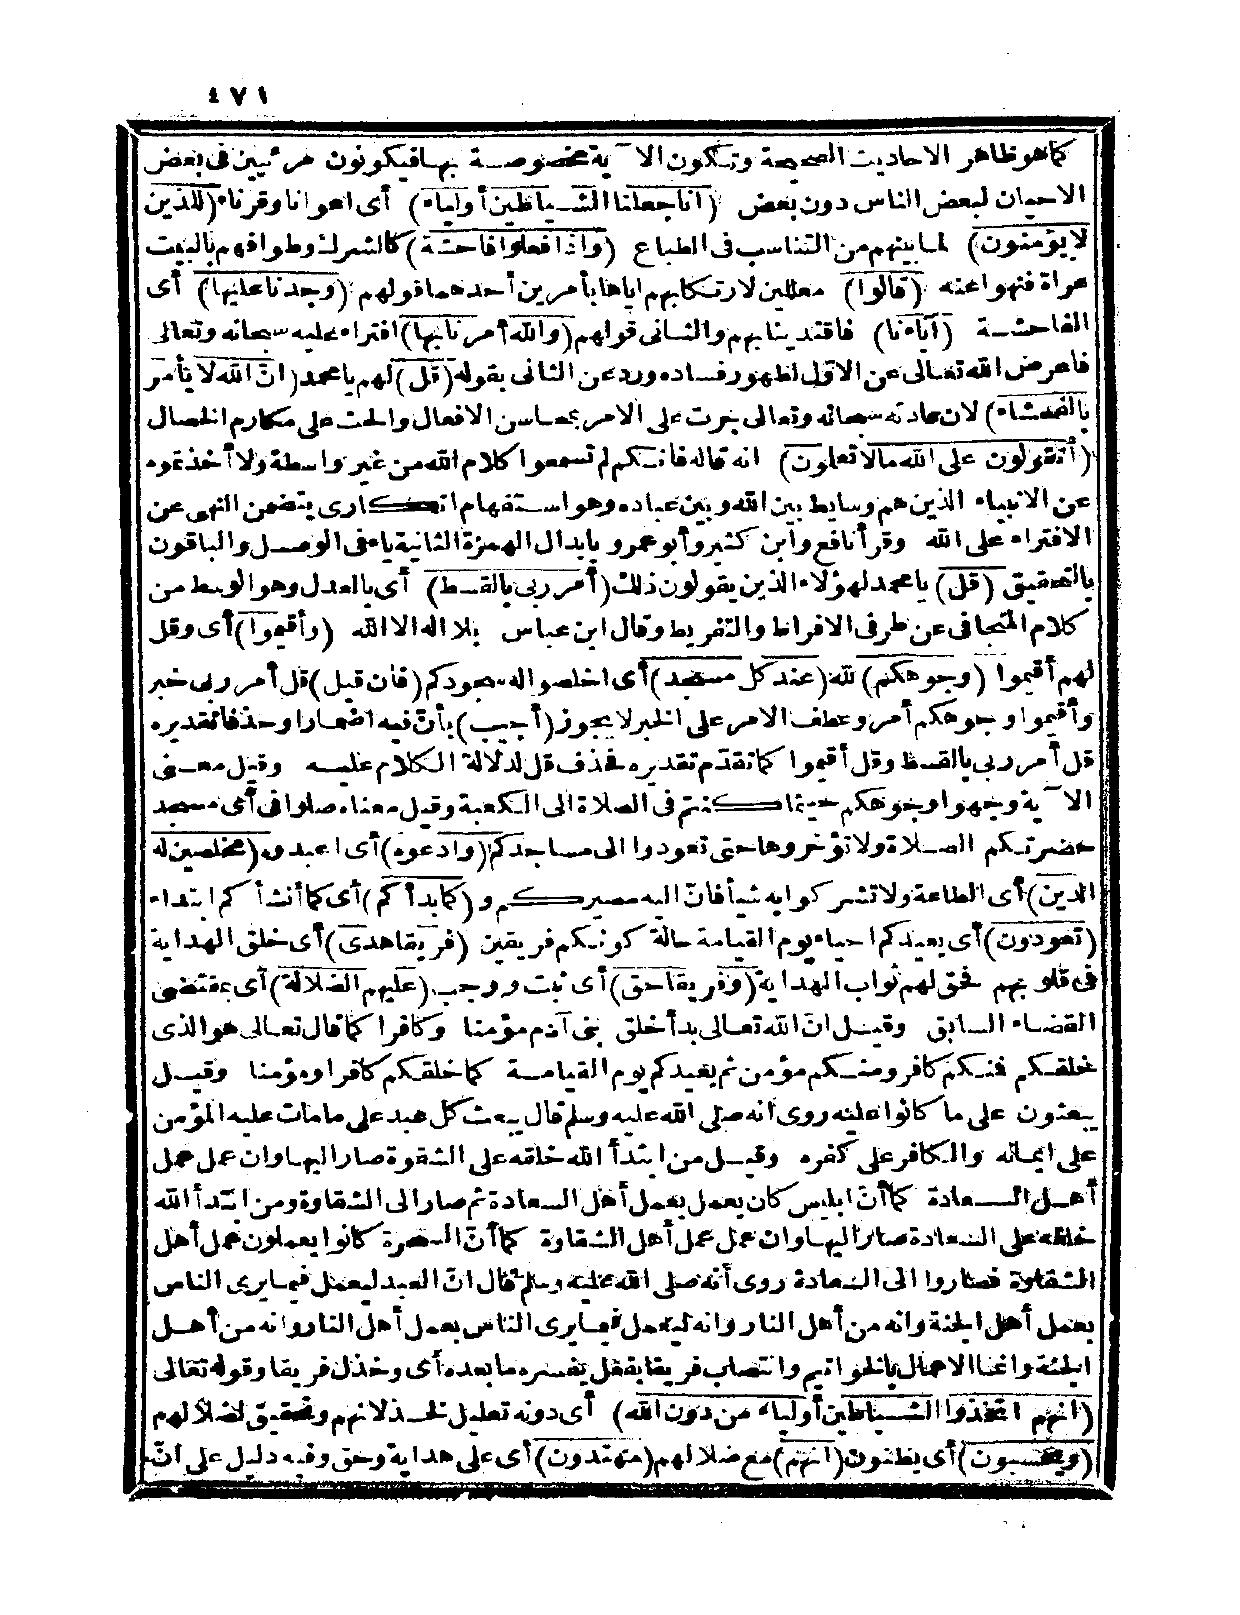 ٤٧١
كما هو ظاهر الاحاديث الصحيحة وتكون الآية مخصوصة بها فيكونون مرئيين فى بعض
الاحيان لبعض الناس دون بعض (انا جعلنا الشياطين أولياء) أى اعوانا وقرناء (للذين
لا يؤمنون) لما بينهم من التناسب فى الطباع (واذا فعلوا فاحشة) كالشرك وطوافهم بالبيت
عراة فنهوا عنه (قالوا) معللين لارتكابهم اياها بأمرين أحدهما قولهم (وجدنا عليها) أى
الفاحشة (آباءنا) فاقتدينا بهم والثانى قولهم (والله أمرنا بها) افتراء عليه سبحانه وتعالى
فأعرض الله تعالى عن الاول لظهور فساده ورد عن الثانى بقوله (قل) لهم يا محمد (انّ الله لا يأمر
بالفحشاء) لان عادته سبحانه وتعالى جرت على الامر بمحاسن الافعال والحث على مكارم الخصال
(أتقولون على الله مالا تعلمون) انه قاله فانكم لم تسمعوا كلام الله من غير واسطة ولا أخذتموه
عن الانبياء الذين هم وسايط بين الله وبين عباده وهو استفهام انكارى يتضمن النهى عن
الافتراء على الله وقرأ نافع وابن كثير وأبو عمرو بابدال الهمزة الثانية ياء فى الوصل والباقون
بالتحقيق (قل) يا محمد لهؤلاء الذين يقولون ذلك (أمر ربى بالقسط) أى بالعدل وهو الوسط من
كلام المتجافى عن طرفى الافراط والتفريط وقال ابن عباس بلا اله الا الله (وأقيموا) أى وقل
لهم أقيموا (وجوهكم) لله (عند كل مسجد) أى اخلصوا له سجودكم (فان قيل) قل أمر ربى خبر
وأقيموا وجوهكم أمر وعطف الامر على الخبر لا يجوز (أجيب) بأنّ فيه اضمارا وحذفا تقديره
قل أمر ربى بالقسط وقل أقيموا كما تقدّم تقديره فحذف قل لدلالة الكلام عليه وقيل معنى
الآية وجهوا وجوهكم حيثما كنتم فى الصلاة الى الكعبة وقيل معناه صلوا فى أى مسجد
حضرتكم الصلاة ولا تؤخروها حتى تعودوا الى مساجدكم (وادعوه) أى اعبدوه (مخلصين له
الدين) أى الطاعة ولا تشركوا به شيأ فانّ اليه مصيركم و(كما بدأكم) أى كما أنشأكم ابتداء
(تعودون) أى يعيدكم احياء يوم القيامة حالة كونكم فريقين (فريقا هدى) أى خلق الهداية
فى قلوبهم فحق لهم ثواب الهداية (وفريقا حق) أى ثبت ووجب (عليهم الضلالة) أى بمقتضى
القضاء السابق وقيل انّ الله تعالى بدأ خلق بنى آدم مؤمنا وكافرا كما قال تعالى هو الذى
خلقكم فمنكم كافر ومنكم مؤمن ثم يعيدكم يوم القيامة كما خلقكم كافرا ومؤمنا وقيل
يبعثون على ما كانوا عليه روى انه صلى الله عليه وسلم قال يبعث كل عبد على ما مات عليه المؤمن
على ايمانه والكافر على كفره وقيل من ابتدأ الله خلقه على الشقوة صار اليها وان عمل عمل
أهل السعادة كما أنّ ابليس كان يعمل بعمل أهل السعادة ثم صار الى الشقاوة ومن ابتدأ الله
خلقه على السعادة صار اليها وان عمل عمل أهل الشقاوة كما أنّ السحرة كانوا يعملون عمل أهل
الشقاوة فصاروا الى السعادة روى أنه صلى الله عليه وسلم قال انّ العبد ليعمل فيما يرى الناس
بعمل أهل الجنة وانه من أهل النار وانه ليعمل فيما يرى الناس بعمل أهل النار وانه من أهل
الجنة وانما الاعمال بالخواتيم وانتصاب فريقا بفعل يفسره ما بعده أى وخذل فريقا وقوله تعالى
(انهم اتخذوا الشياطين أولياء من دون الله) أى دونه تعليل لخذلانهم وتحقيق لضلالهم
(ويحسبون) أى يظنون (انهم) مع ضلالهم (مهتدون) أى على هداية وحق وفيه دليل على انّ